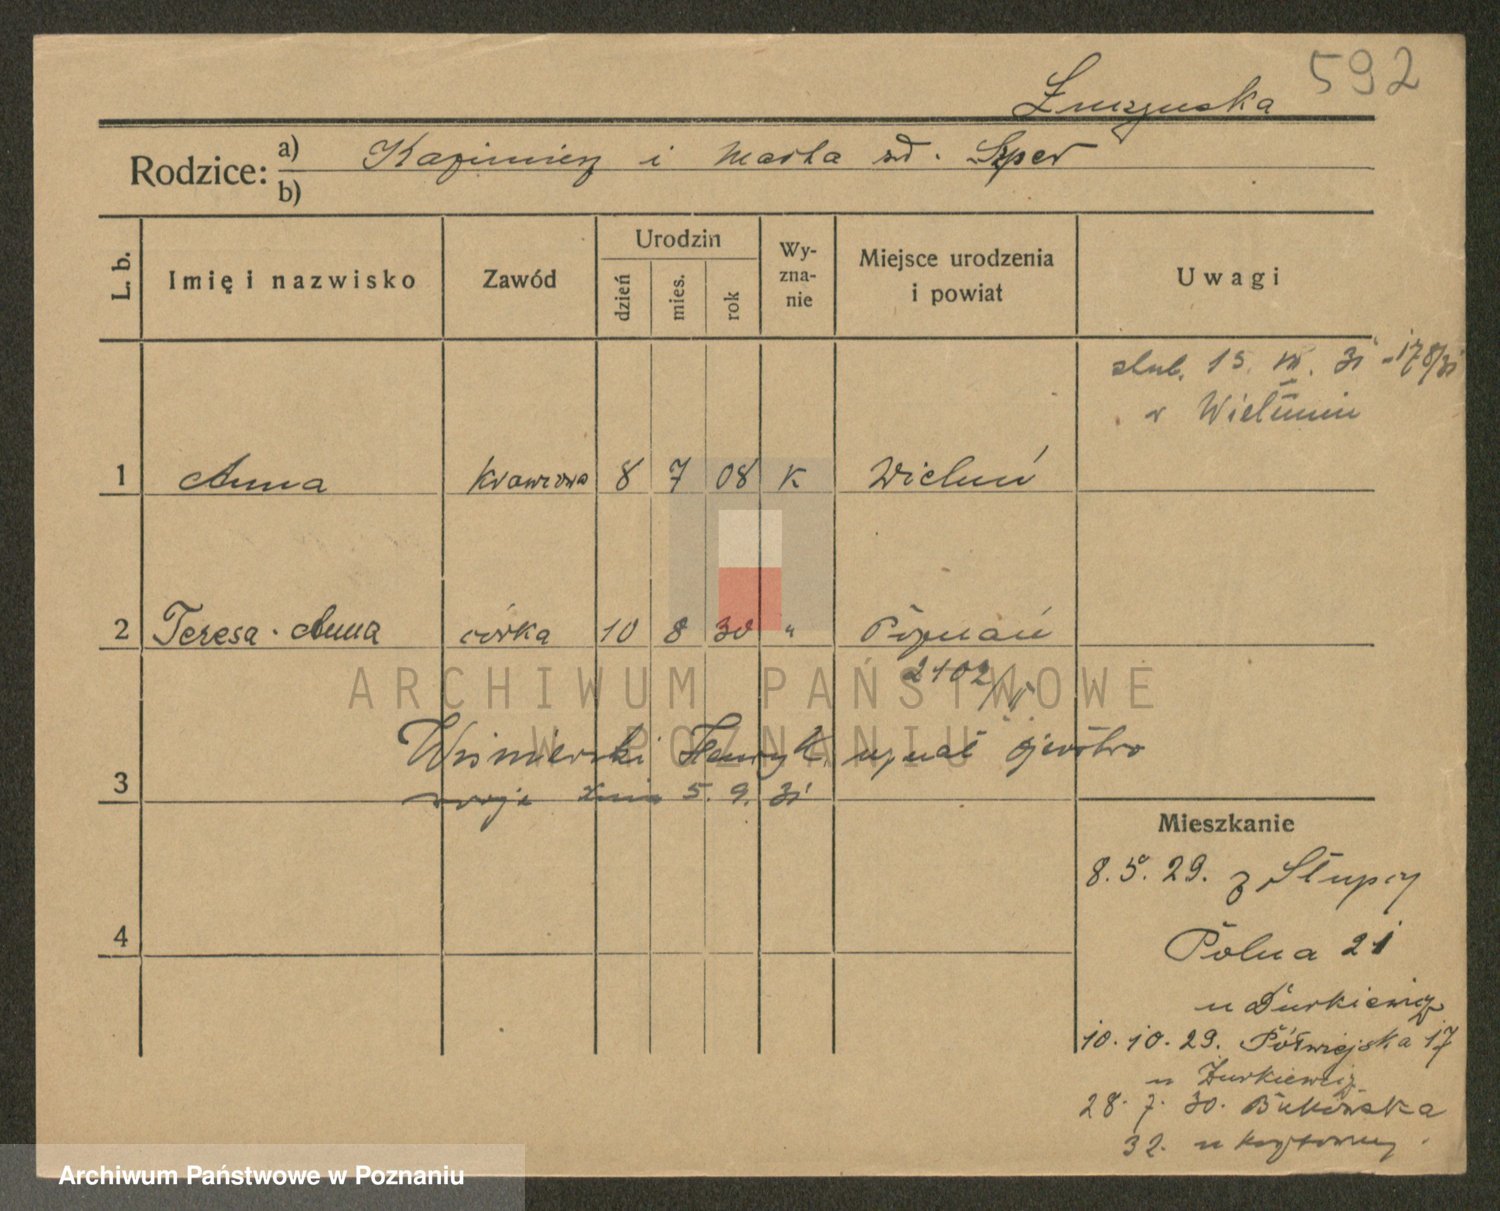 592
Żmizgaska
Rodzice: a) Kazimierz i Marta zd. Szper
b)
L. b.
Imię i nazwisko
Zawód
Urodzin
dzień
mies.
rok
Wy-
zna-
nie
Miejsce urodzenia
i powiat
Uwagi
ślub. 15. VII. 31 - 178/31
w Wieluniu
1 Anna krawcowa 8 7 08 k Wieluń
2 Teresa - Anna córka 10 8 30 " Poznań
2102/IV
ARCHIWUM PAŃSTWOWE
W POZNANIU
Wiśnierski Henryk uznał ojcostwo
3 swoje dnia 5. 9. 31
Mieszkanie
8. 5. 29. z Słupcy
4
Polna 21
u Żurkiewicz
10. 10. 29. Półwiejska 17
u Żurkiewicz
28. 7. 30. Bukowska
32. u
Archiwum Państwowe w Poznaniu